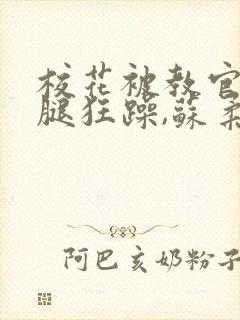 校花被教官
腿狂躁,蘇柔
阿巴亥奶粉子